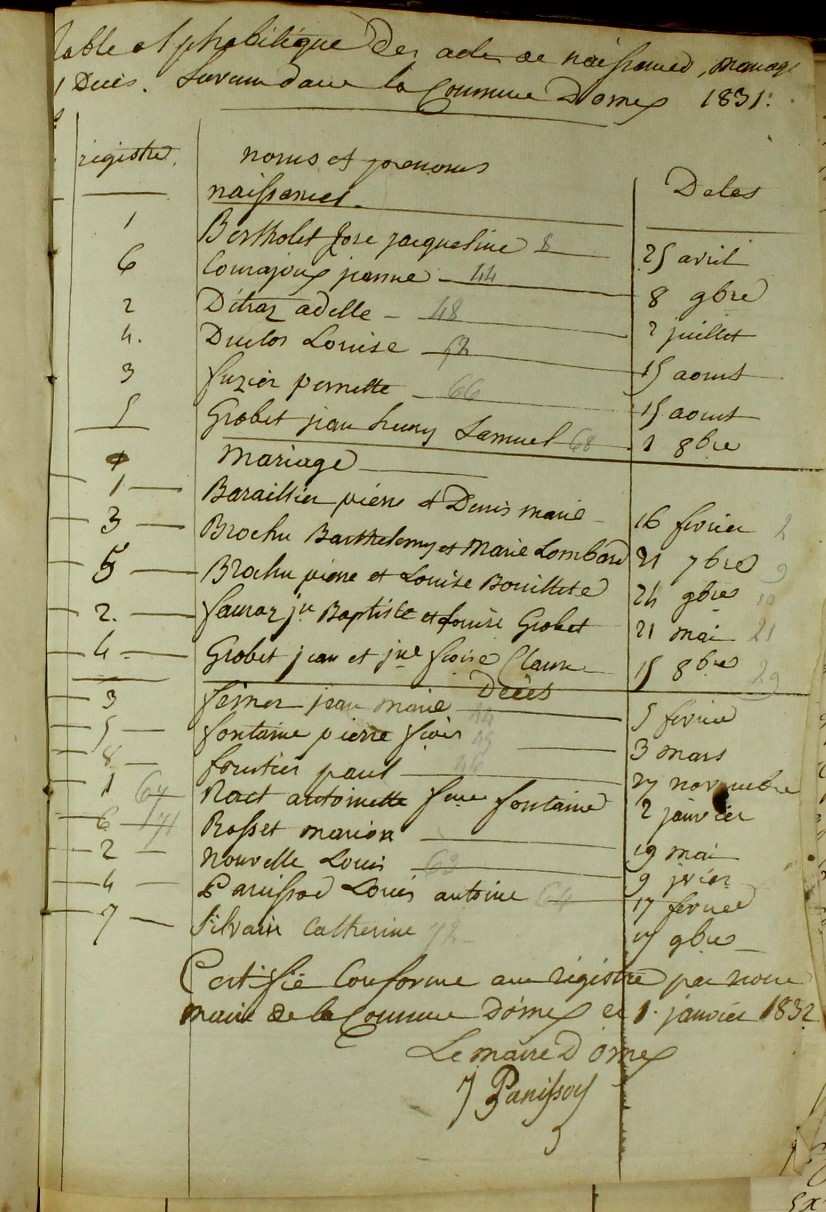 Table alphabétique des actes de naissances, mariage
Décès. Survenu dans la Commune Dornex 1831.
registre. noms et prenoms Dates
naissances.
1 Bertholet Jose jacqueline 8 25 avril
6 Courajoux jeanne 44 8 9bre
2 Détraz adelle 48 2 juillet
4. Duclos Louise 15 aoust
3 fuzier pernette 66 15 aoust
5 Grobet jean henry Samuel 68 1 8bre
mariage
1 Baraillier piérre et Denis marie 16 février 2
3 Brochu Barthelemy et Marie Lombard 21 7bre 9
5 Brochu pierre et Louise Bouillete 24 9bre 10
2. jn Baptiste et Louise Grobet 21 mai 21
4 Grobet jean et jne 15 8bre 29
Décès
3 jean marie 44 5 février
5 fontaine pierre 45 3 mars
8 paul 46 27 novembre
1 67 Ract antoinette fme fontaine 2 janvier
6 71 Rosset marion 19 mai
2 nouvelle Louis 63 9 jvier
4 Panissod Louis antoine 64 17 février
7 Silvain Catherine 72 17 9bre
Certifié Conforme au régistre par nous
maire de la Commune Dornex ce 1. janvier 1832
Le maire Dornex
J Panissod